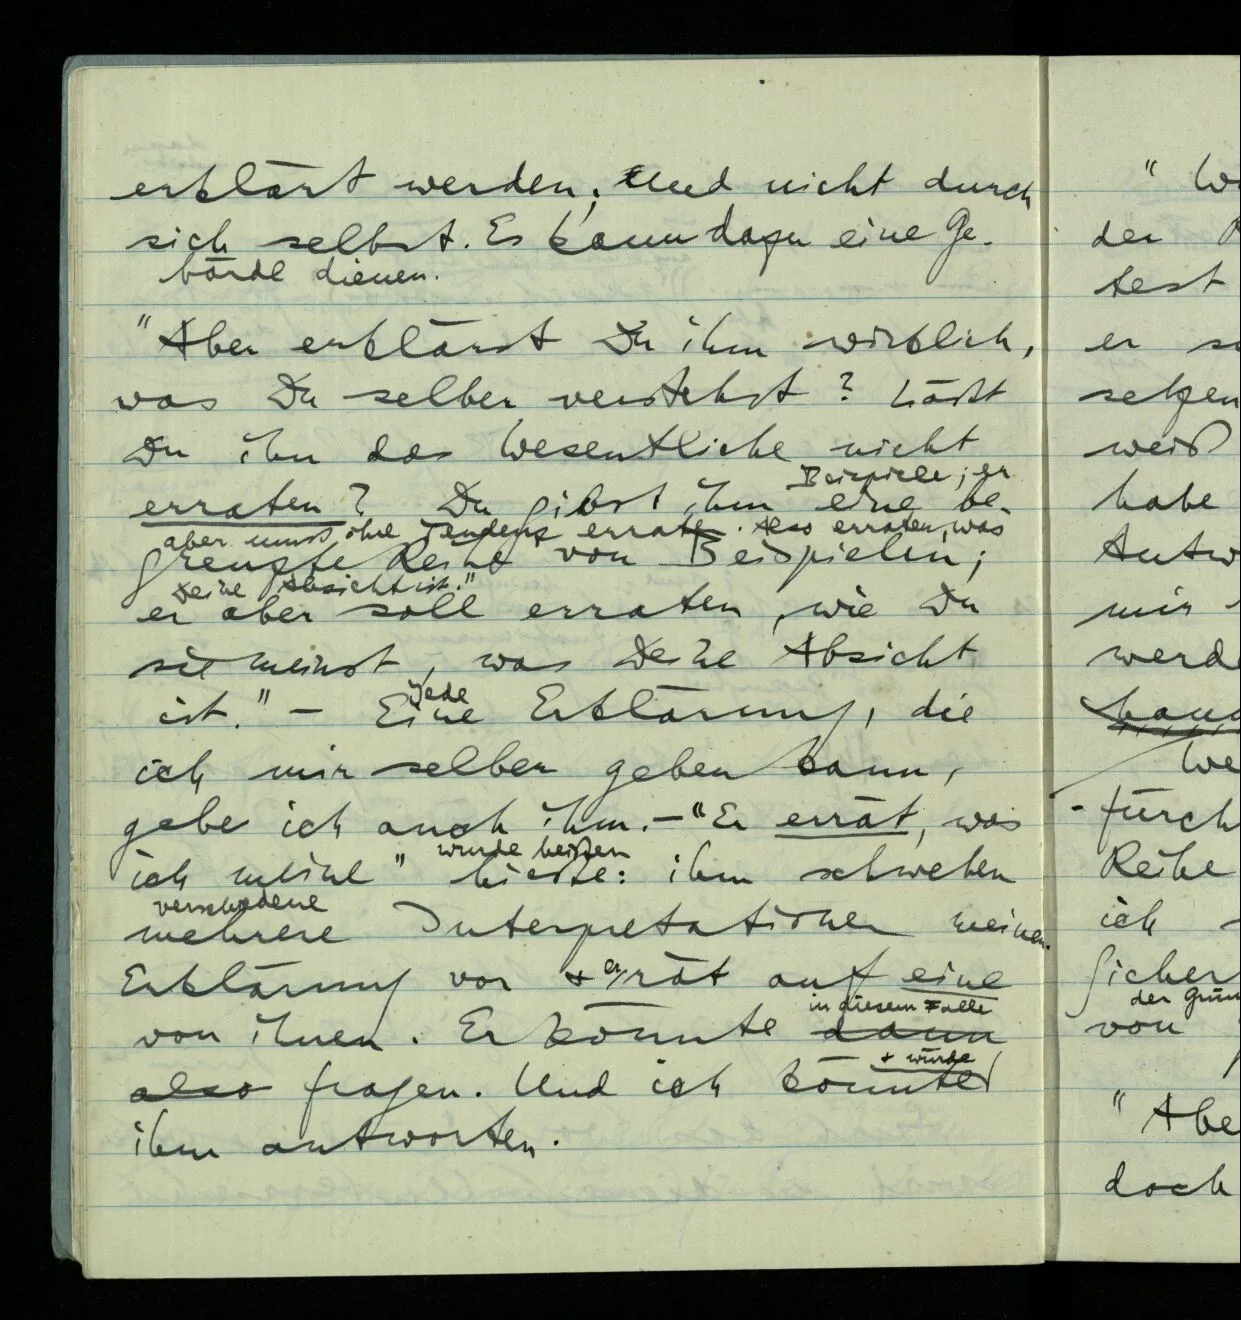 erklärt werden; Und nicht durch
sich selbst. Es kann dazu eine Ge-
bärde dienen.
"Aber erklärst Du ihm wirklich,
was Du selber verstehst? Läßt
Du ihn das Wesentliche nicht
Beispiele; er
erraten? Du gibst ihm eine be-
aber muß ihre Tendenz erraten. Also erraten, was
grenzte Reihe von Beispielen;
Deine Absicht ist."
er aber soll erraten, wie Du
sie meinst, was Deine Absicht
jede
ist." – Eine Erklärung, die
ich mir selber geben kann,
gebe ich auch ihm. – "Er errät, was
würde heißen
ich meine" hieße: ihm schweben
verschiedene
mehrere Interpretationen meiner
er
Erklärung vor + rät auf eine
in diesem Falle
von ihnen. Er könnte dann
+ würde
also fragen. Und ich könnte
ihm antworten.
" We
der
test
er
setzen
weiß
habe
Antw
mir
werde
We
- fürch
Reihe
ich
sicher
der Grun
von
" Abe
doch